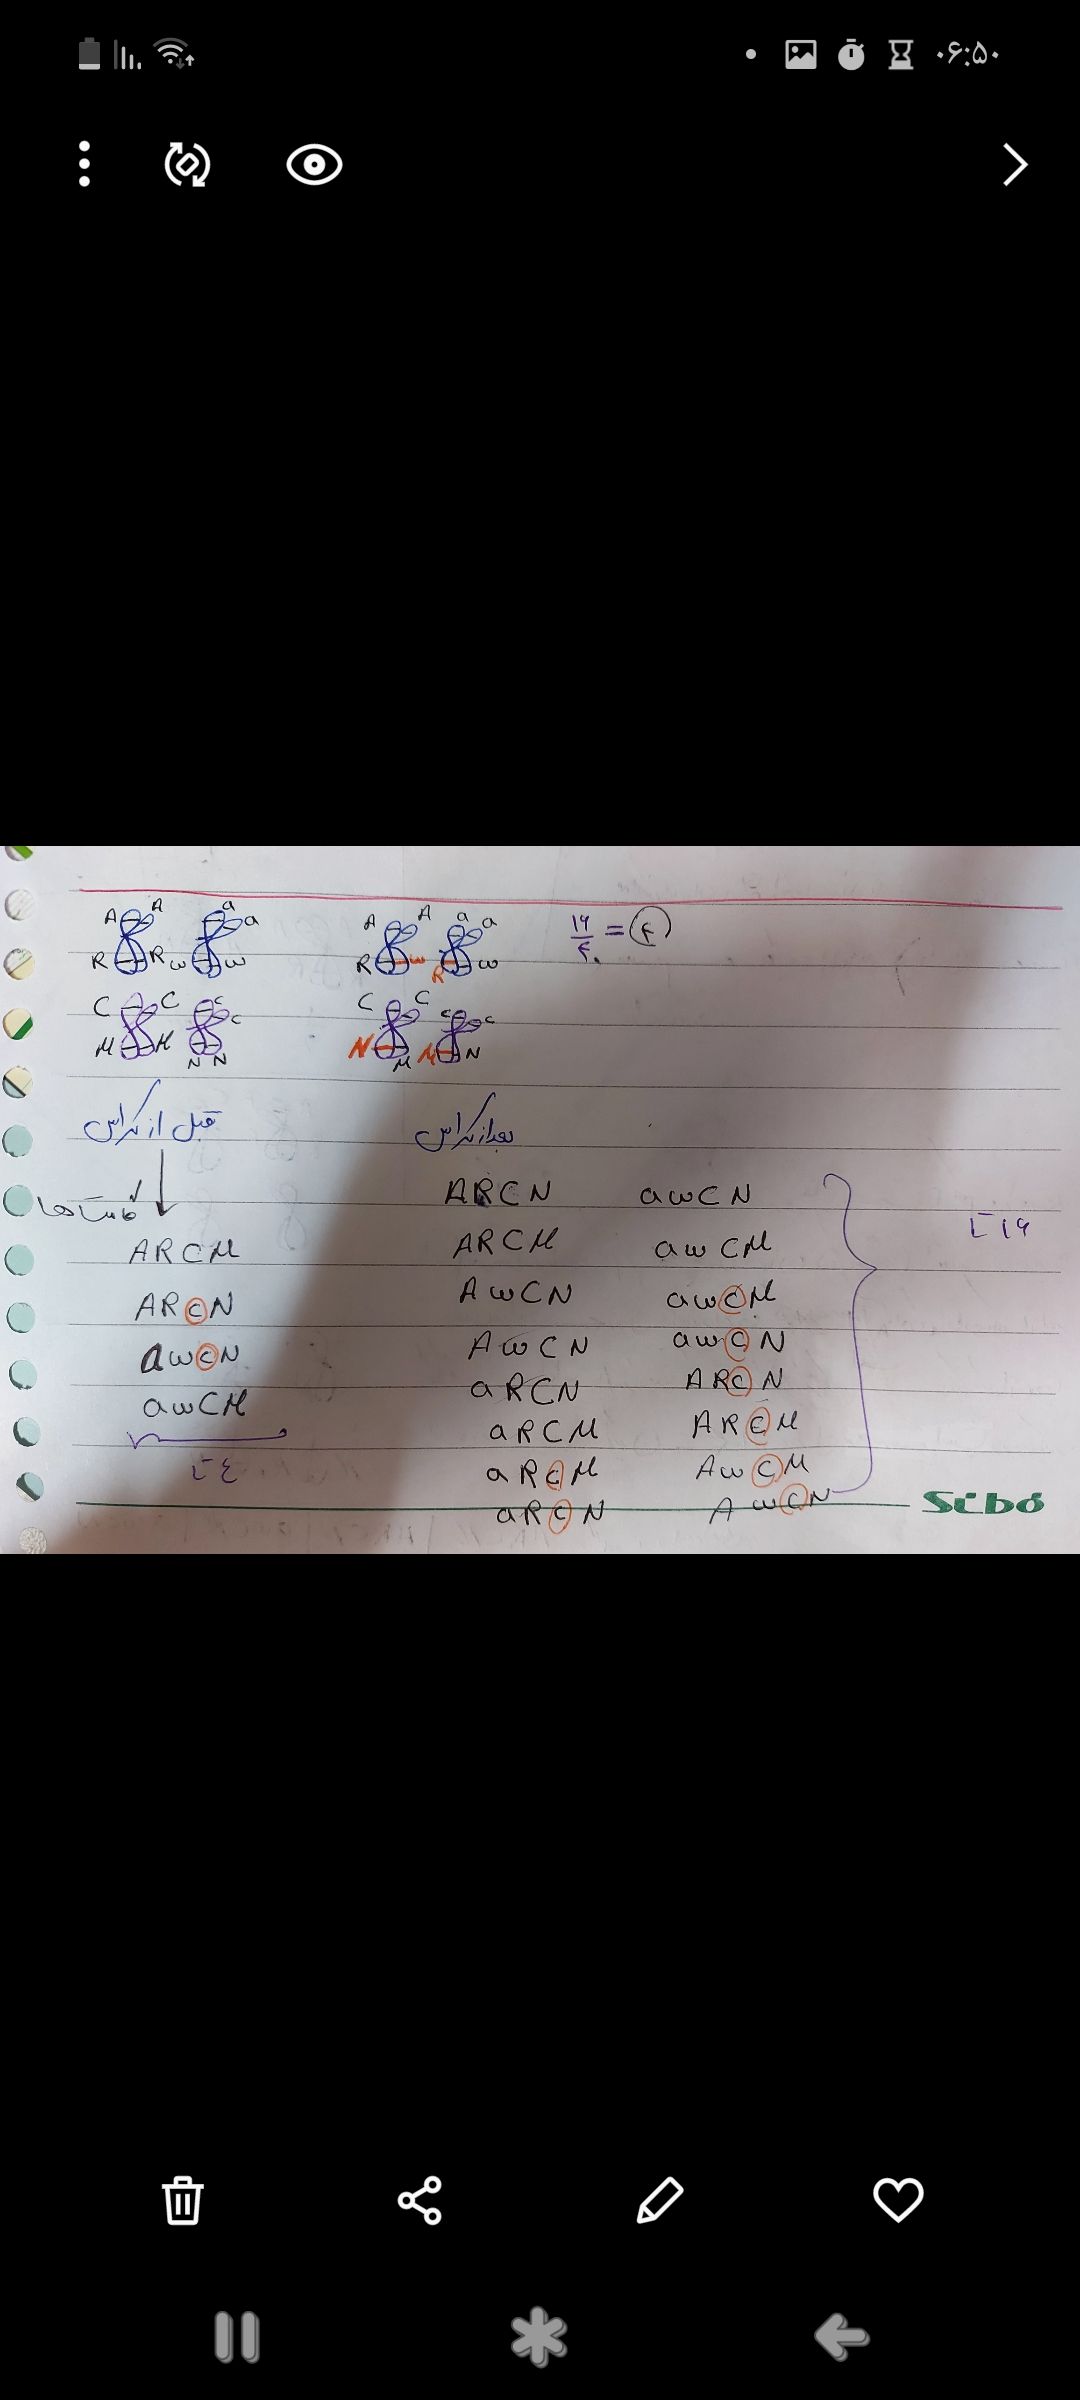 ۰۶:۵۰
A A a a
R R w w
A A a a
R w R w
۱۶/۴ = ۴
C C c c
M M N N
C C c c
N M M N
قبل از کراس
بعد از کراس
گامت ها
ARCM
ARcN
awcN
awCM
۴ تا
ARCN
ARCM
AwCN
AwCN
aRCN
aRCM
aRcM
aRcN
awCN
awCM
awcM
awcN
ARcN
ARcM
AwcM
AwcN
۱۶ تا
Sibo